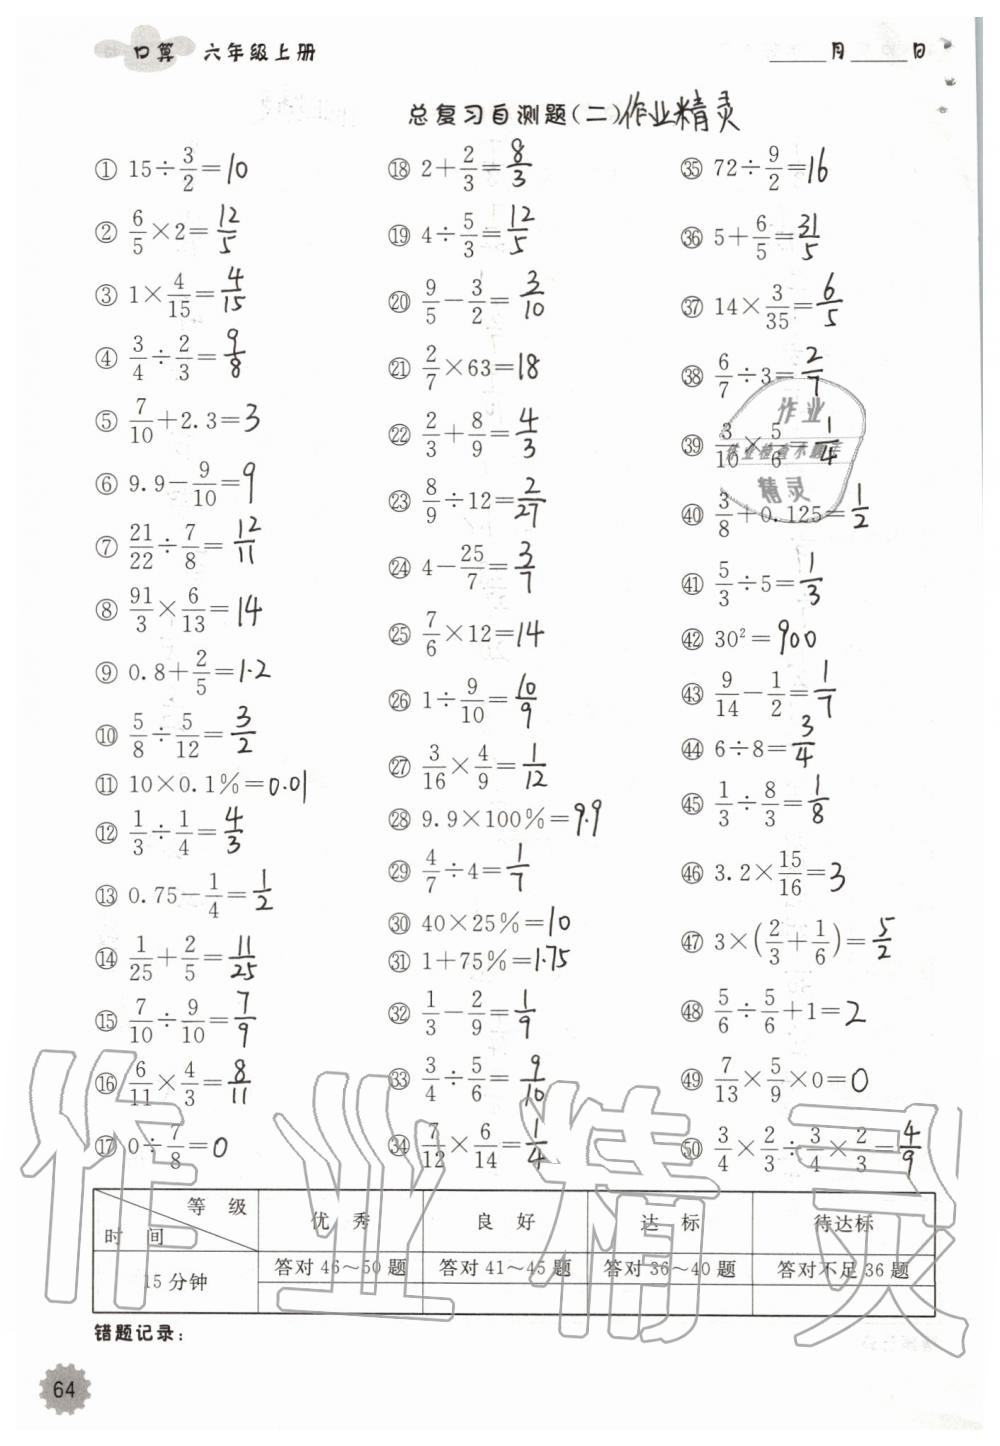 口算 六年级上册 ____月____日
总复习自测题(二)作业精灵
① 15÷3/2=10
② 6/5×2=12/5
③ 1×4/15=4/15
④ 3/4÷2/3=9/8
⑤ 7/10+2.3=3
⑥ 9.9−9/10=9
⑦ 21/22÷7/8=12/11
⑧ 91/3×6/13=14
⑨ 0.8+2/5=1.2
⑩ 5/8÷5/12=3/2
⑪ 10×0.1%=0.01
⑫ 1/3÷1/4=4/3
⑬ 0.75−1/4=1/2
⑭ 1/25+2/5=11/25
⑮ 7/10÷9/10=7/9
⑯ 6/11×4/3=8/11
⑰ 0÷7/8=0
⑱ 2+2/3=8/3
⑲ 4÷5/3=12/5
⑳ 9/5−3/2=3/10
㉑ 2/7×63=18
㉒ 2/3+8/9=4/3
㉓ 8/9÷12=2/27
㉔ 4−25/7=3/7
㉕ 7/6×12=14
㉖ 1÷9/10=10/9
㉗ 3/16×4/9=1/12
㉘ 9.9×100%=9.9
㉙ 4/7÷4=1/7
㉚ 40×25%=10
㉛ 1+75%=1.75
㉜ 1/3−2/9=1/9
㉝ 3/4÷5/6=9/10
㉞ 7/12×6/14=1/4
㉟ 72÷9/2=16
㊱ 5+6/5=31/5
㊲ 14×3/35=6/5
㊳ 6/7÷3=2/7
㊴ 3/10×5/6=1/4
㊵ 3/8+0.125=1/2
㊶ 5/3÷5=1/3
㊷ 30²=900
㊸ 9/14−1/2=1/7
㊹ 6÷8=3/4
㊺ 1/3÷8/3=1/8
㊻ 3.2×15/16=3
㊼ 3×(2/3+1/6)=5/2
㊽ 5/6÷5/6+1=2
㊾ 7/13×5/9×0=0
㊿ 3/4×2/3÷3/4×2/3=4/9
作业
作业检查小助手
精灵
等级 时间 优秀 良好 达标 待达标
15分钟 答对46～50题 答对41～45题 答对36～40题 答对不足36题
错题记录：
作业精灵
64